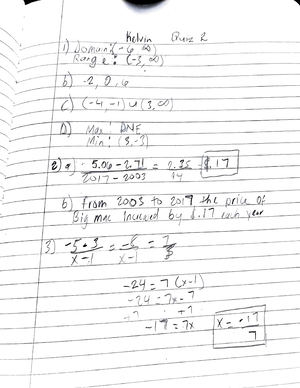 Kelvin Quiz 2
1) Domain: (-6, ∞)
Range: (-3, ∞)
b) -2, 0, 6
c) (-4, -1) ∪ (3, ∞)
D) Max: DNE
Min: (3, -3)
2) a 5.06 - 2.71 / 2017 - 2003 = 2.35 / 14 = $.17
b) from 2003 to 2017 the price of
Big mac Increased by $.17 each year
3) -5-3 / x-1 = -8 / x-1 = 7
-24 = 7(x-1)
-24 = 7x-7
+7
-17 = 7x
x = -17 / 7